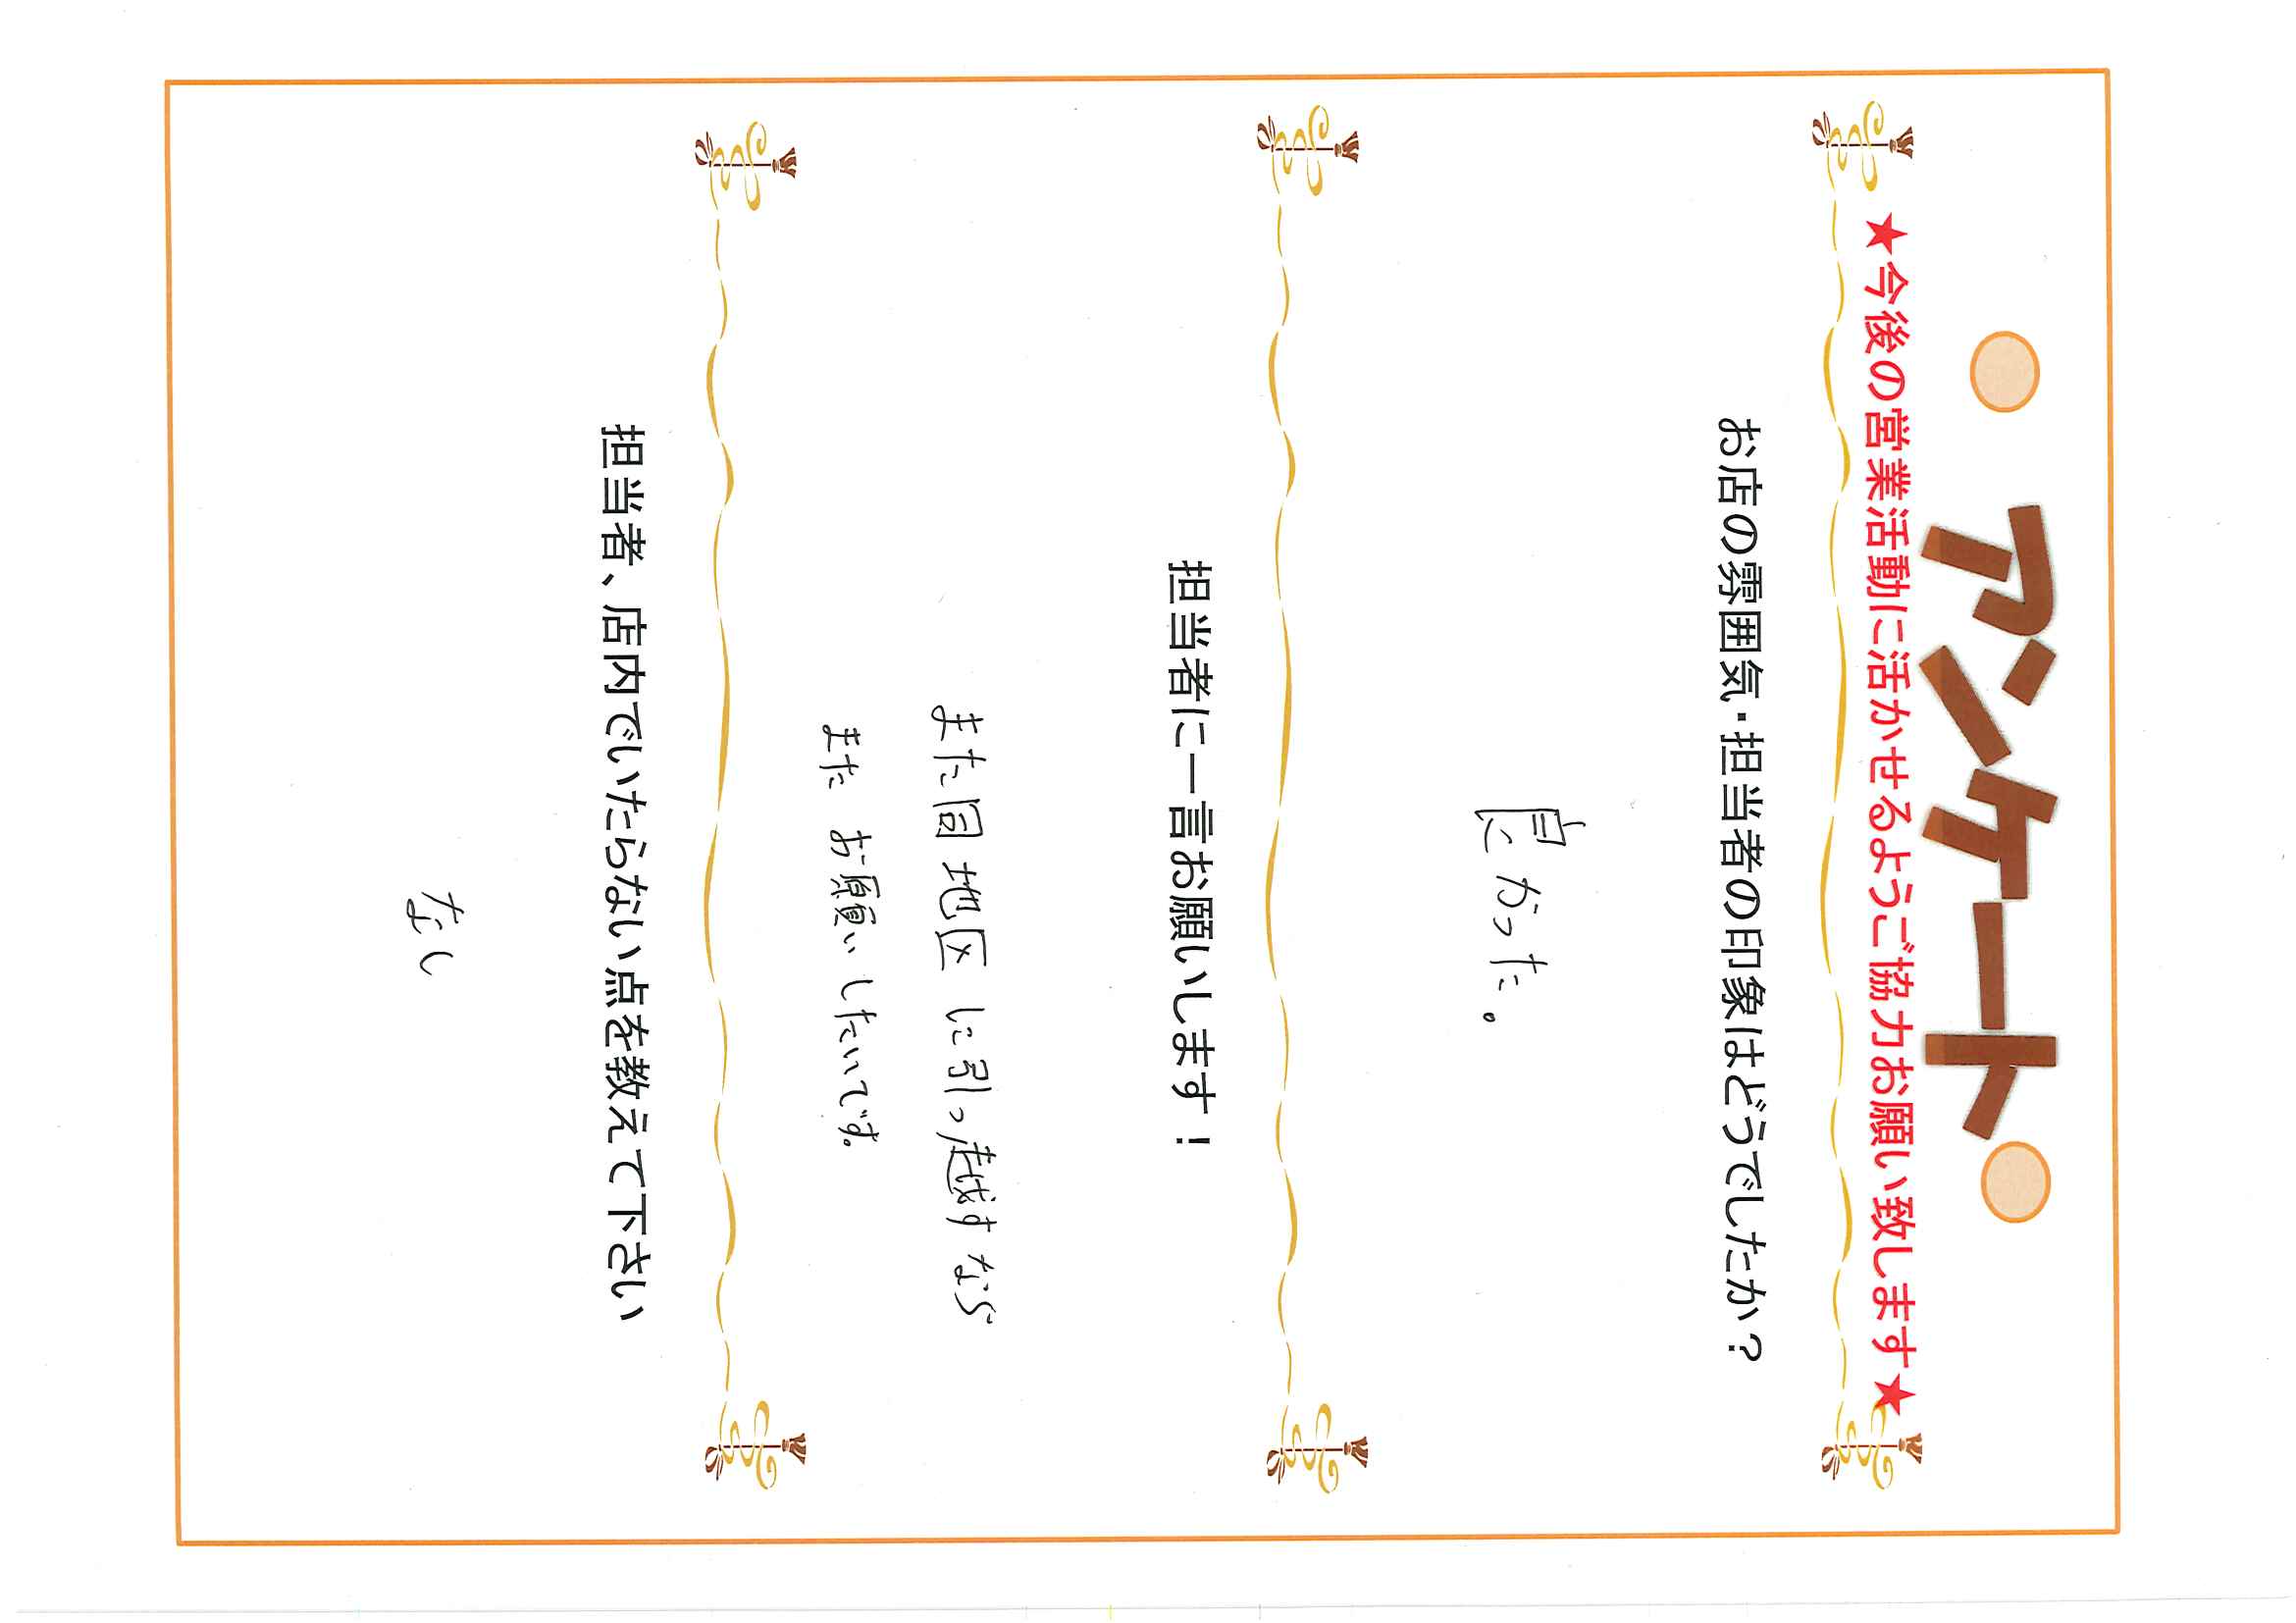 アンケート
★今後の営業活動に活かせるようご協力お願い致します★
お店の雰囲気・担当者の印象はどうでしたか？
良かった。
担当者に一言お願いします！
また同地区に引っ越すなら
また お願いしたいです。
担当者、店内でいたらない点を教えて下さい
なし